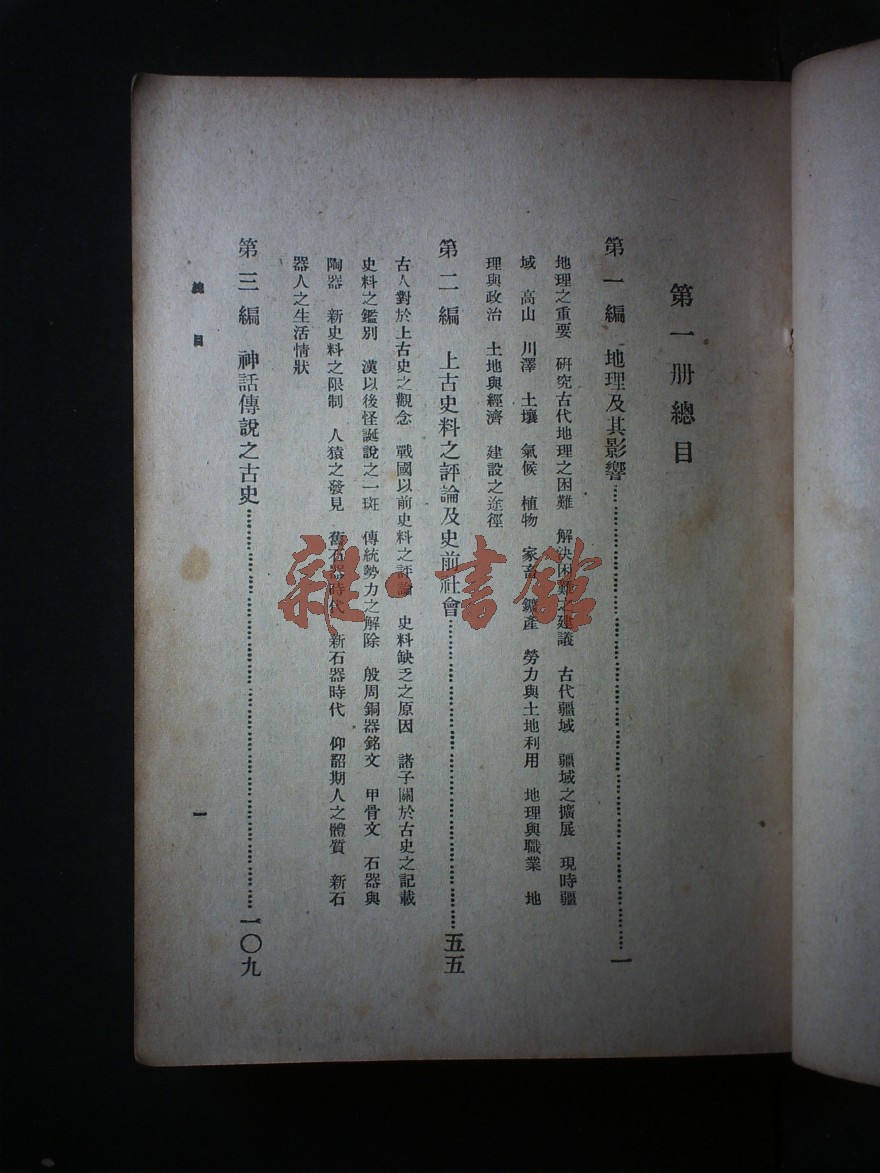 第一册總目
第一編　地理及其影響……一
地理之重要　研究古代地理之困難　解決困難之建議　古代疆域　疆域之擴展　現時疆
域　高山　川澤　土壤　氣候　植物　家畜　鑛產　勞力與土地利用　地理與職業　地
理與政治　土地與經濟　建設之途徑
第二編　上古史料之評論及史前社會……五五
古人對於上古史之觀念　戰國以前史料之評論　史料缺乏之原因　諸子關於古史之記載
史料之鑑別　漢以後怪誕說之一斑　傳統勢力之解除　殷周銅器銘文　甲骨文　石器與
陶器　新史料之限制　人猿之發見　舊石器時代　新石器時代　仰韶期人之體質　新石
器人之生活情狀
第三編　神話傳說之古史……一〇九
總目
一
雜·書館